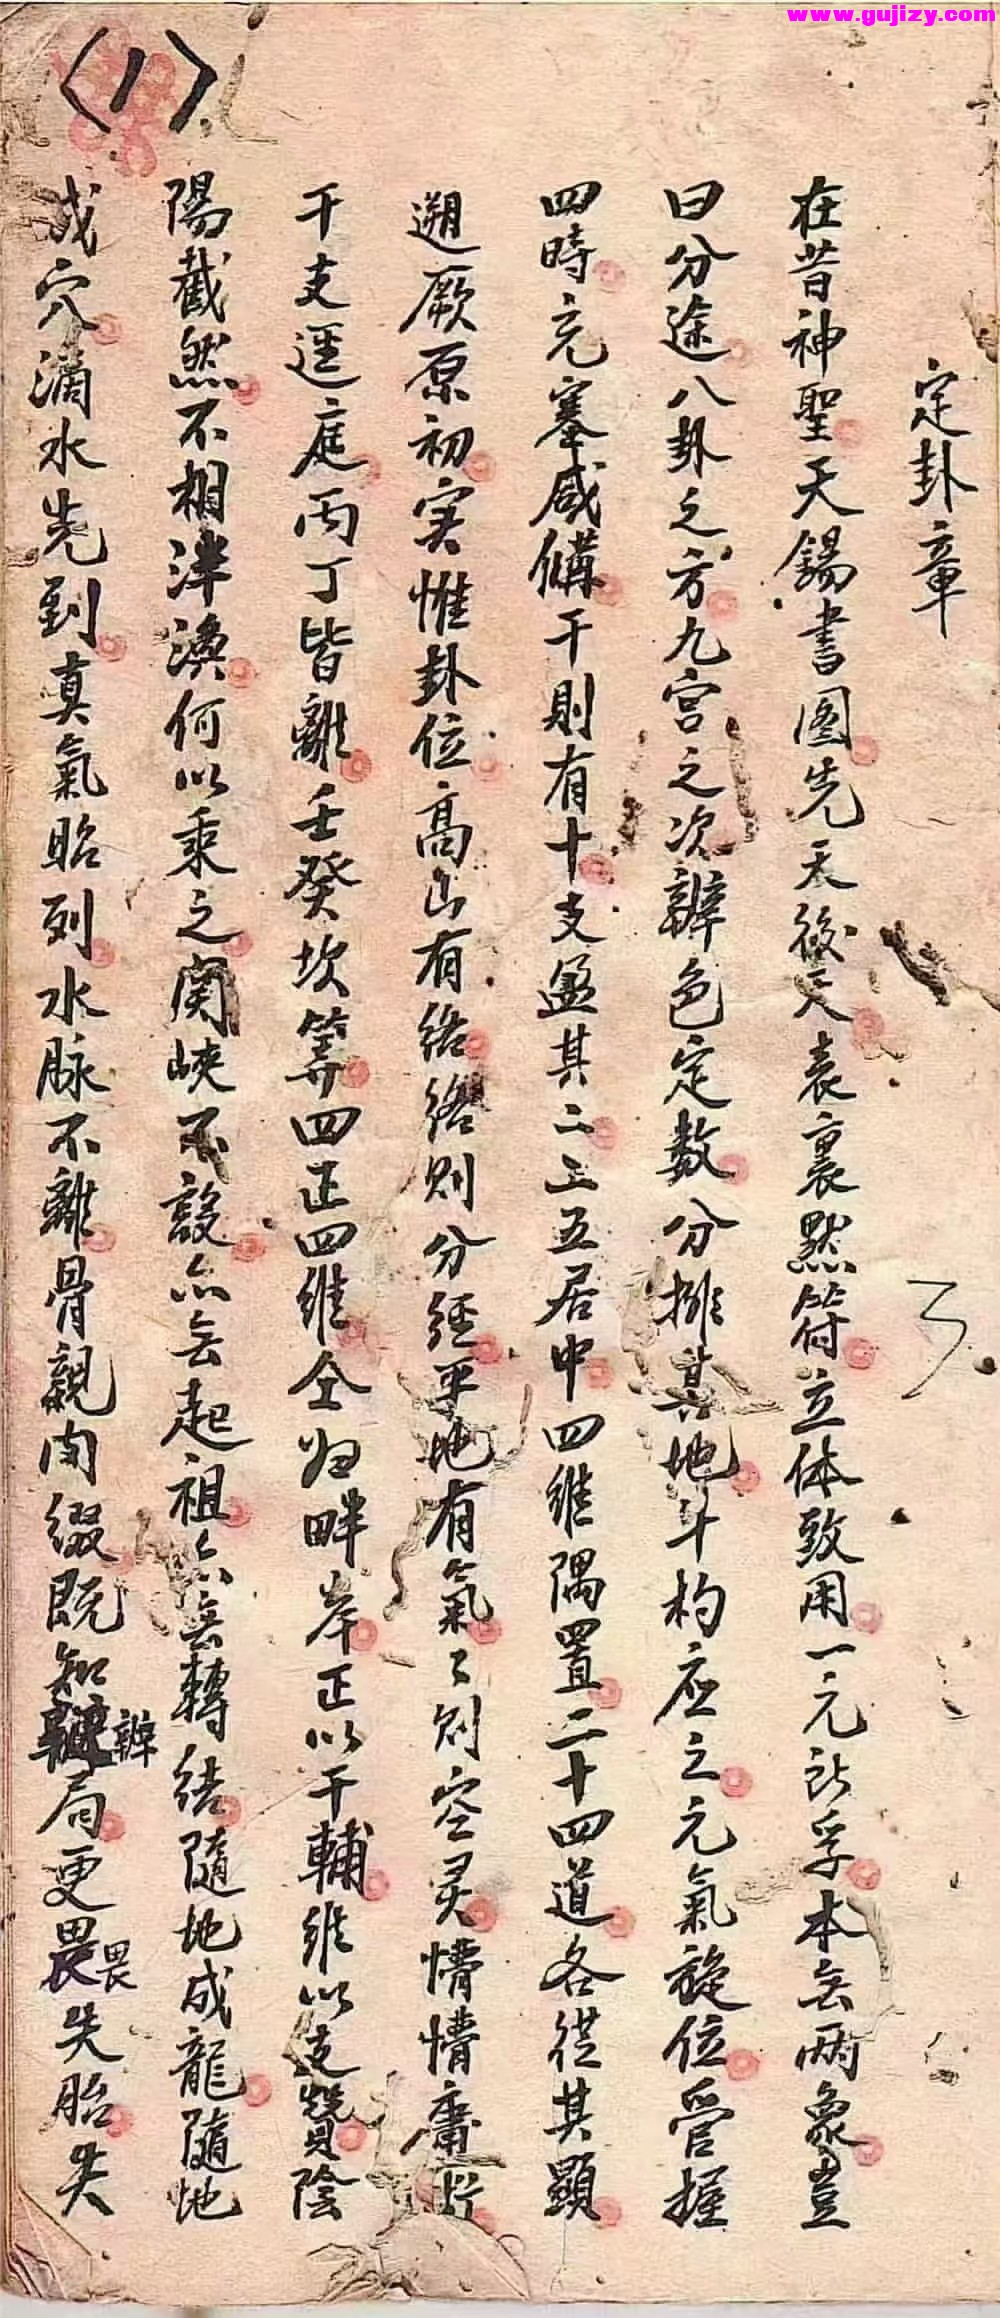 www.gujizy.com
〈1〉
定卦章
在昔神聖天錫書图先天後天表裏黙符立体致用一元所孚本无兩象豈
曰分途八卦之方九宮之次辨色定数分擁其地斗杓应之元氣旋位管握
四時充塞咸備干則有十支盈其二三五居中四維隅置二十四道各從其顯
遡厥原初实惟卦位高山有絡絡則分經平地有氣々則空灵情情庸
干支逕庭丙丁皆離壬癸坎等四正四維仝归畔岸正以干輔維以支賛陰
陽截然不相泮渙何以乘之関峽不設亦无起祖亦无轉結隨地成龍隨地
成穴滴水先到真氣昭列水脉不離骨親肉缀既知辦局更畏失胎失
辦
畏